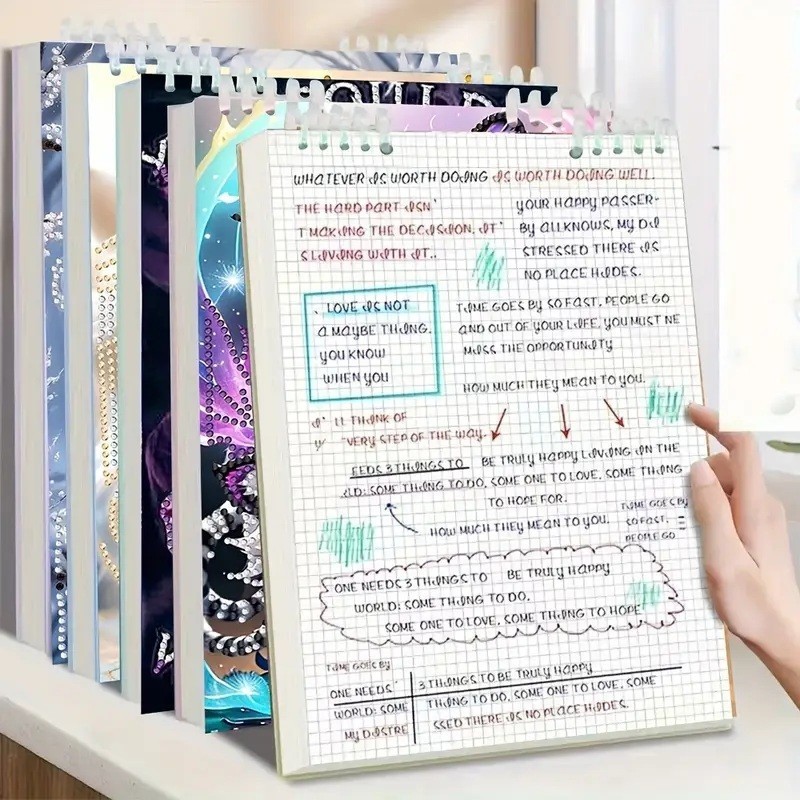 WHATEVER IS WORTH DOING IS WORTH DOING WELL.
THE HARD PART ISN'
T MAKING THE DECISION. IT'
S LIVING WITH IT..
YOUR HAPPY PASSER-
BY ALLKNOWS, MY DI
STRESSED THERE IS
NO PLACE HIDES.
. LOVE IS NOT
A MAYBE THING.
YOU KNOW
WHEN YOU
TIME GOES BY SO FAST, PEOPLE GO
AND OUT OF YOUR LIFE. YOU MUST NE
MISS THE OPPORTUNITY
HOW MUCH THEY MEAN TO YOU.
I' LL THINK OF
"VERY STEP OF THE WAY.
EEDS 3 THINGS TO BE TRULY HAPPY LIVING IN THE
RLD: SOME THING TO DO, SOME ONE TO LOVE, SOME THING
TO HOPE FOR.
HOW MUCH THEY MEAN TO YOU.
TIME GOES BY
SO FAST,
PEOPLE GO
ONE NEEDS 3 THINGS TO BE TRULY HAPPY
WORLD: SOME THING TO DO,
SOME ONE TO LOVE, SOME THING TO HOPE
TIME GOES BY
ONE NEEDS' 3 THINGS TO BE TRULY HAPPY
WORLD: SOME THING TO DO, SOME ONE TO LOVE, SOME
MY DISTRE SSED THERE IS NO PLACE HIDES.